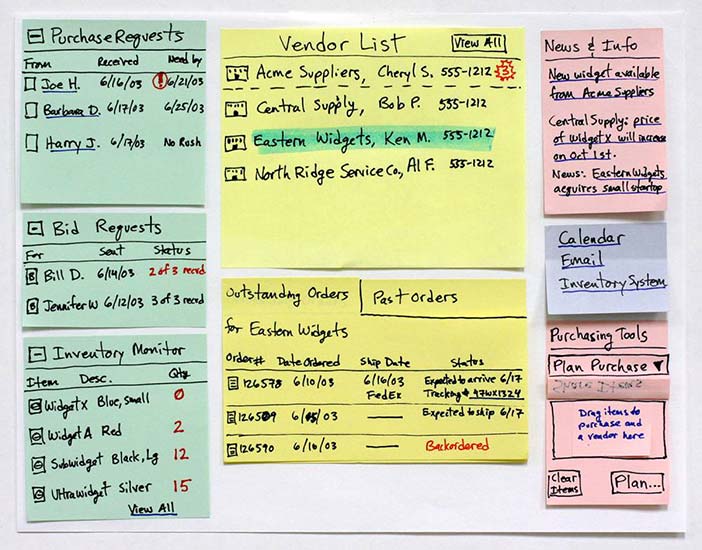 Purchase Requests
From Received Need by
Joe H. 6/16/03 ! 6/21/03
Barbara D. 6/17/03 6/25/03
Harry J. 6/17/03 No Rush
Bid Requests
For Sent Status
B Bill D. 6/14/03 2 of 3 recvd
B Jennifer W 6/12/03 3 of 3 recvd
Inventory Monitor
Item Desc. Qty
Widget X Blue, Small 0
Widget A Red 2
Subwidget Black, Lg 12
Ultrawidget Silver 15
View All
Vendor List View All
Acme Suppliers, Cheryl S. 555-1212 3
Central Supply, Bob P. 555-1212
Eastern Widgets, Ken M. 555-1212
North Ridge Service Co, Al F. 555-1212
Outstanding Orders Past Orders
for Eastern Widgets
Order# Date Ordered Ship Date Status
126578 6/10/03 6/16/03 Expected to arrive 6/17
FedEx Tracking# 47WX1324
126589 6/15/03 — Expected to ship 6/17
126590 6/16/03 — Backordered
News & Info
New widget available
from Acme Suppliers
Central Supply: price
of Widget X will increase
on Oct 1st.
News: Eastern Widgets
acquires small startup
Calendar
Email
Inventory System
Purchasing Tools
Plan Purchase ▼
Drag items to
purchase and
a vendor here
Clear
Items
Plan...